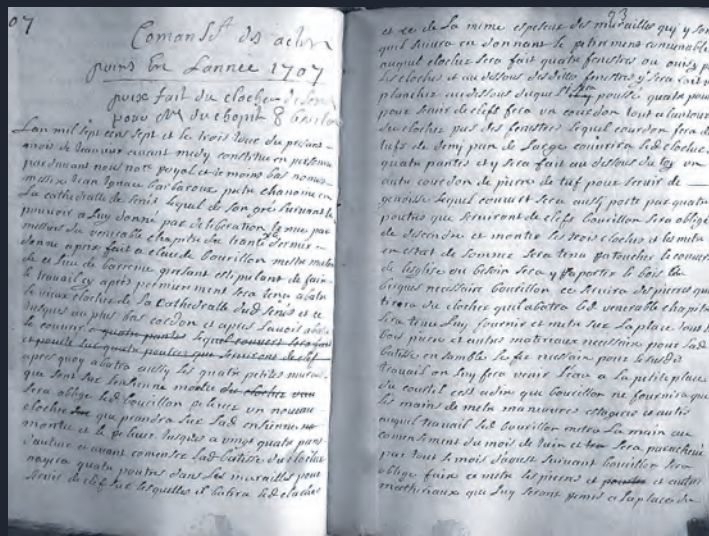 07
Comanst des actes
prins En Lannee 1707
prix fait du clocher de Senes
pour du chapit Bourillon
Lan mil sept cens sept et le trois Jour du present
mois de avant midy constitue en personne
pardavant nous notre Royal et temoins bas nommes
messire Jean Ignace barbaroux pretre chanoine en
La cathedralle de Senes Lequel de son gré suivant le
pouvoir a Luy donné par deliberation tenue par
messieurs du venerable chapitre du trante dernier
donne a prix fait a claude bourillon metre masson
de ce Lieu de barreme presant et stipulant de faire
le travail cy apres permierement sera tenu abatre
le vieux clocher de La Cathedralle dud Senes et ce
Jusques au plus bas cordon et apres Lavoir abatu
le couvrir a quatre pantes Lequel couvert sera
et posé sur quatre poutres que serviront de clef
apres quoy abatra aussy les quatre petites murailles
que sont sur Lensienne montée du clocher
sera obligé led bourillon eslever un nouveau
clocher que prandra sur Lad ensienne
montée et le Jusques a vingt quatre pans
d'auteur et avant comenser Lad batisse du clocher
quatre poutres dans Les murailles pour
servir de clef sur les quelles il batira led clocher
23
et ce de La mime espeseur des murailles qui y sont
quil suivra en donnant le
auquel clocher sera fait quatre fenestres ou ouies pour
les cloches et au dessous desdites fenestres y sera fait un
plancher au dessous duquel sera poussé quatre poutres
pour servir de clefs fera un courdon tout a lantour
du clocher pres des fenestres Lequel courdon sera de
tufs de demy pan de Large couvrira led clocher a
quatre pantes et y sera fait au dessous du toy un
autre courdon de pierre de tuf pour servir de
genoise Lequel couvert sera aussy porté par quatre
poutres que serviront de clefs bourillon sera obligé
de dessendre et monter les trois cloches et les metre
en estat de sonner sera tenu retoucher le couvert
de leglise ou besoin sera y aporter le bois et
briques necessaire bourillon se servira des pierres que
tirera du clocher quil abatra led venerable chapitre
sera tenu Luy fournir et metre sur La place tous les
bois pierre et autres materiaux necessaire pour Lad
batisse en semble Le fer necessaire pour le susdit
travail on Luy fera venir Leau a La petite place
du courtil cest adire que bourillon ne fournira que
les mains de metre maneuvres et autres
auquel travail led bourillon metra La main au
comensement du mois de Juin et sera parachevé
par tout le mois daoust suivant bourillon sera
obligé faire metre les pierres et et autres
matheriaux que Luy seront remis a La place du